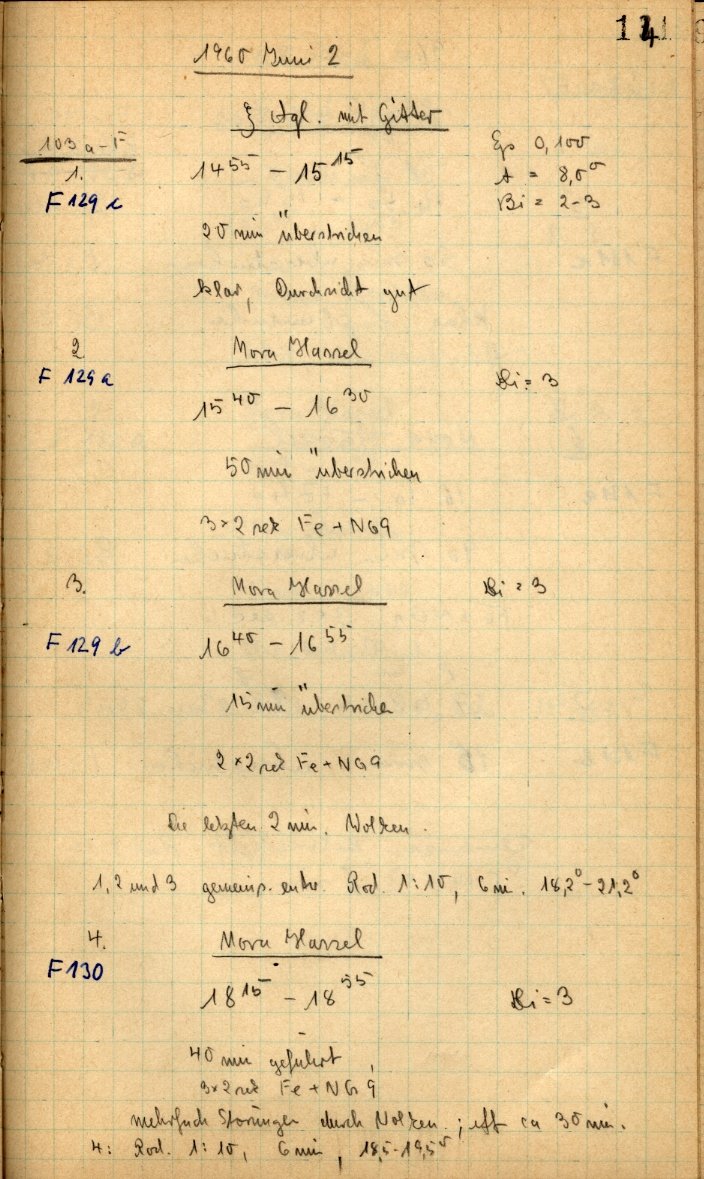 141
1960 Juni 2
ξ Aql. mit Gitter
103 a-F
Sp 0,100
1.
14 55 - 15 15
A = 8,0°
F 129 c
Bi = 2-3
20 min überstrichen
klar, Durchsicht gut
2.
Nova Hassel
F 129 a
Bi = 3
15 40 - 16 30
50 min überstrichen
3×2 sek Fe + NG9
3.
Nova Hassel
Bi = 3
F 129 b
16 40 - 16 55
15 min überstrichen
2×2 sek Fe + NG9
Die letzten 2 min. Wolken.
1, 2 und 3 gemeins. entw. Rod. 1:10, 6 mi. 18,2° - 21,2°
4.
Nova Hassel
F 130
18 15 - 18 55
Bi = 3
40 min geführt
3×2 sek Fe + NG 9
mehrfach Störungen durch Wolken.; eff ca 30 min.
4: Rod. 1:10, 6 min, 18,5-19,5°